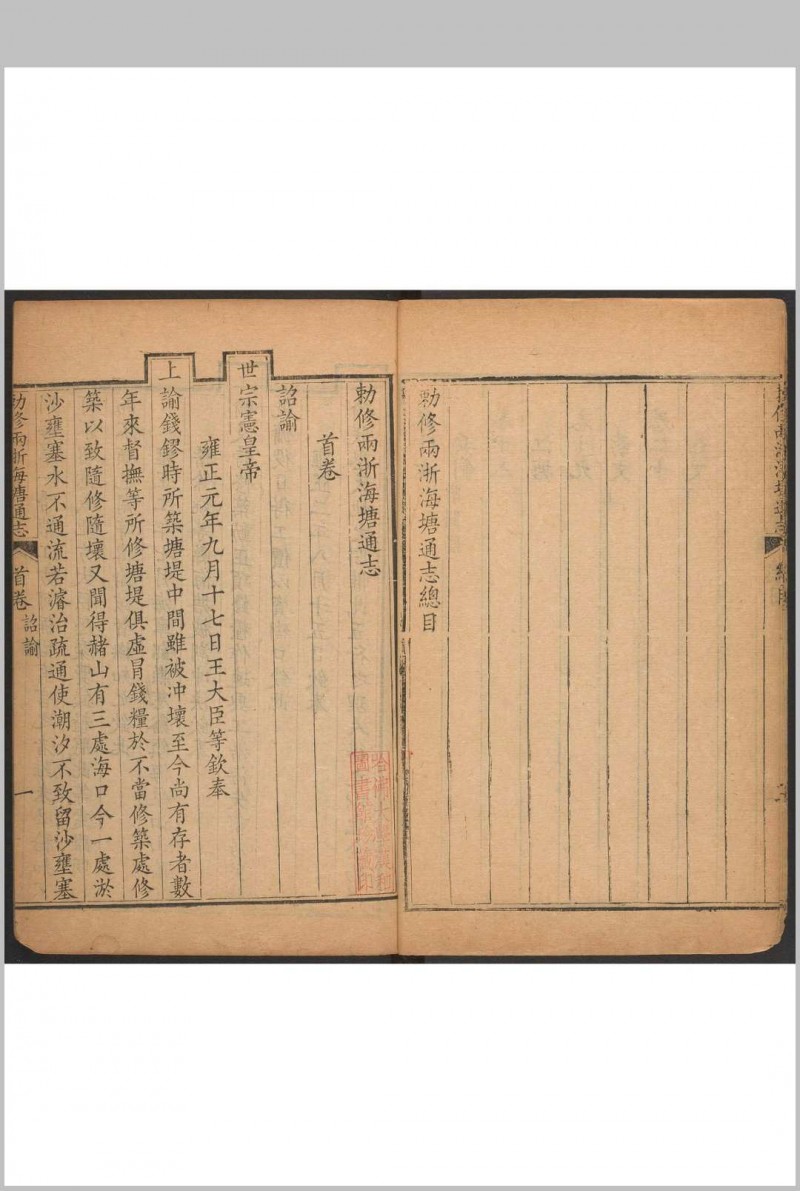 勅修兩浙海塘通志總目
勅修兩浙海塘通志
首卷
詔諭
世宗憲皇帝
雍正元年九月十七日王大臣等欽奉
上諭錢鏐時所築塘堤中間雖被冲壞至今尚有存者數
年來督撫等所修塘堤俱虛冒錢糧於不當修築處修
築以致隨修隨壞又聞得赭山有三處海口今一處淤
沙壅塞水不通流若濬治疏通使潮汐不致留沙壅塞
勅修兩浙海塘通志 首卷 詔諭 一
哈佛大學漢和
圖書館珍藏印